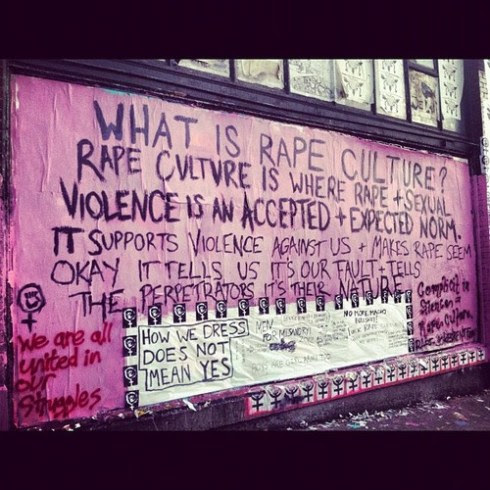 WHAT IS RAPE CULTURE?
RAPE CULTURE IS WHERE RAPE + SEXUAL
VIOLENCE IS AN ACCEPTED + EXPECTED NORM.
IT SUPPORTS VIOLENCE AGAINST US + MAKES RAPE SEEM
OKAY IT TELLS US IT'S OUR FAULT + TELLS
THE PERPETRATORS IT'S THEIR NATURE
we are all
united in
our
struggles
HOW WE DRESS
DOES NOT
MEAN YES
MEN
FOR
NO MORE MACHO
Complicit in
Silence =
Rape Culture